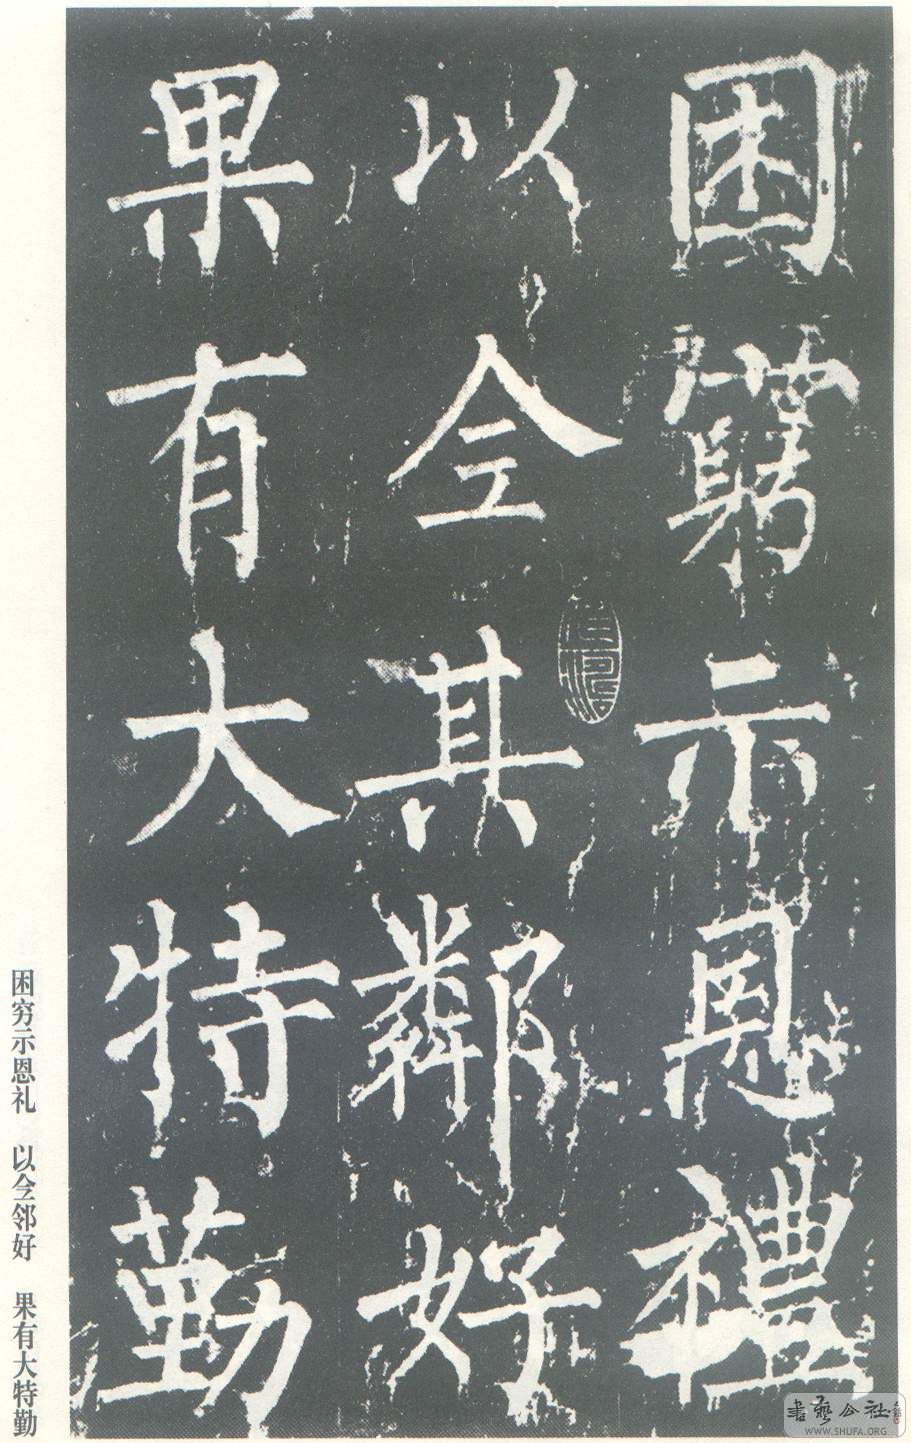 困窮示恩禮
以仝其鄰好
果有大特勤
困穷示恩礼 以仝邻好 果有大特勤
書藝公社
WWW.SHUFA.ORG